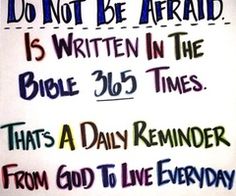 Do Not Be Afraid.
Is Written In The
Bible 365 Times.
Thats A Daily Reminder
From God To Live Everyday